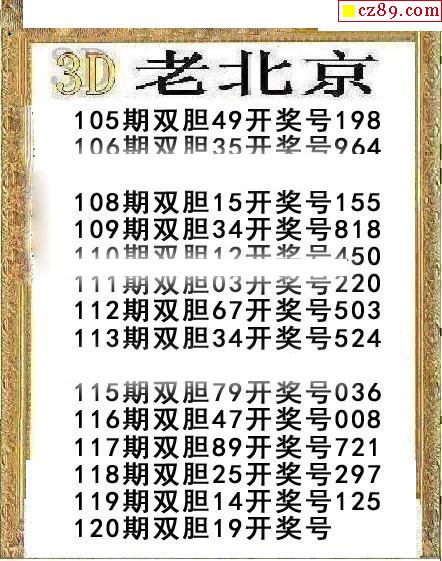 cz89.com
3D 老北京
105期双胆49开奖号198
106期双胆35开奖号964
108期双胆15开奖号155
109期双胆34开奖号818
110期双胆12开奖号450
111期双胆03开奖号220
112期双胆67开奖号503
113期双胆34开奖号524
115期双胆79开奖号036
116期双胆47开奖号008
117期双胆89开奖号721
118期双胆25开奖号297
119期双胆14开奖号125
120期双胆19开奖号